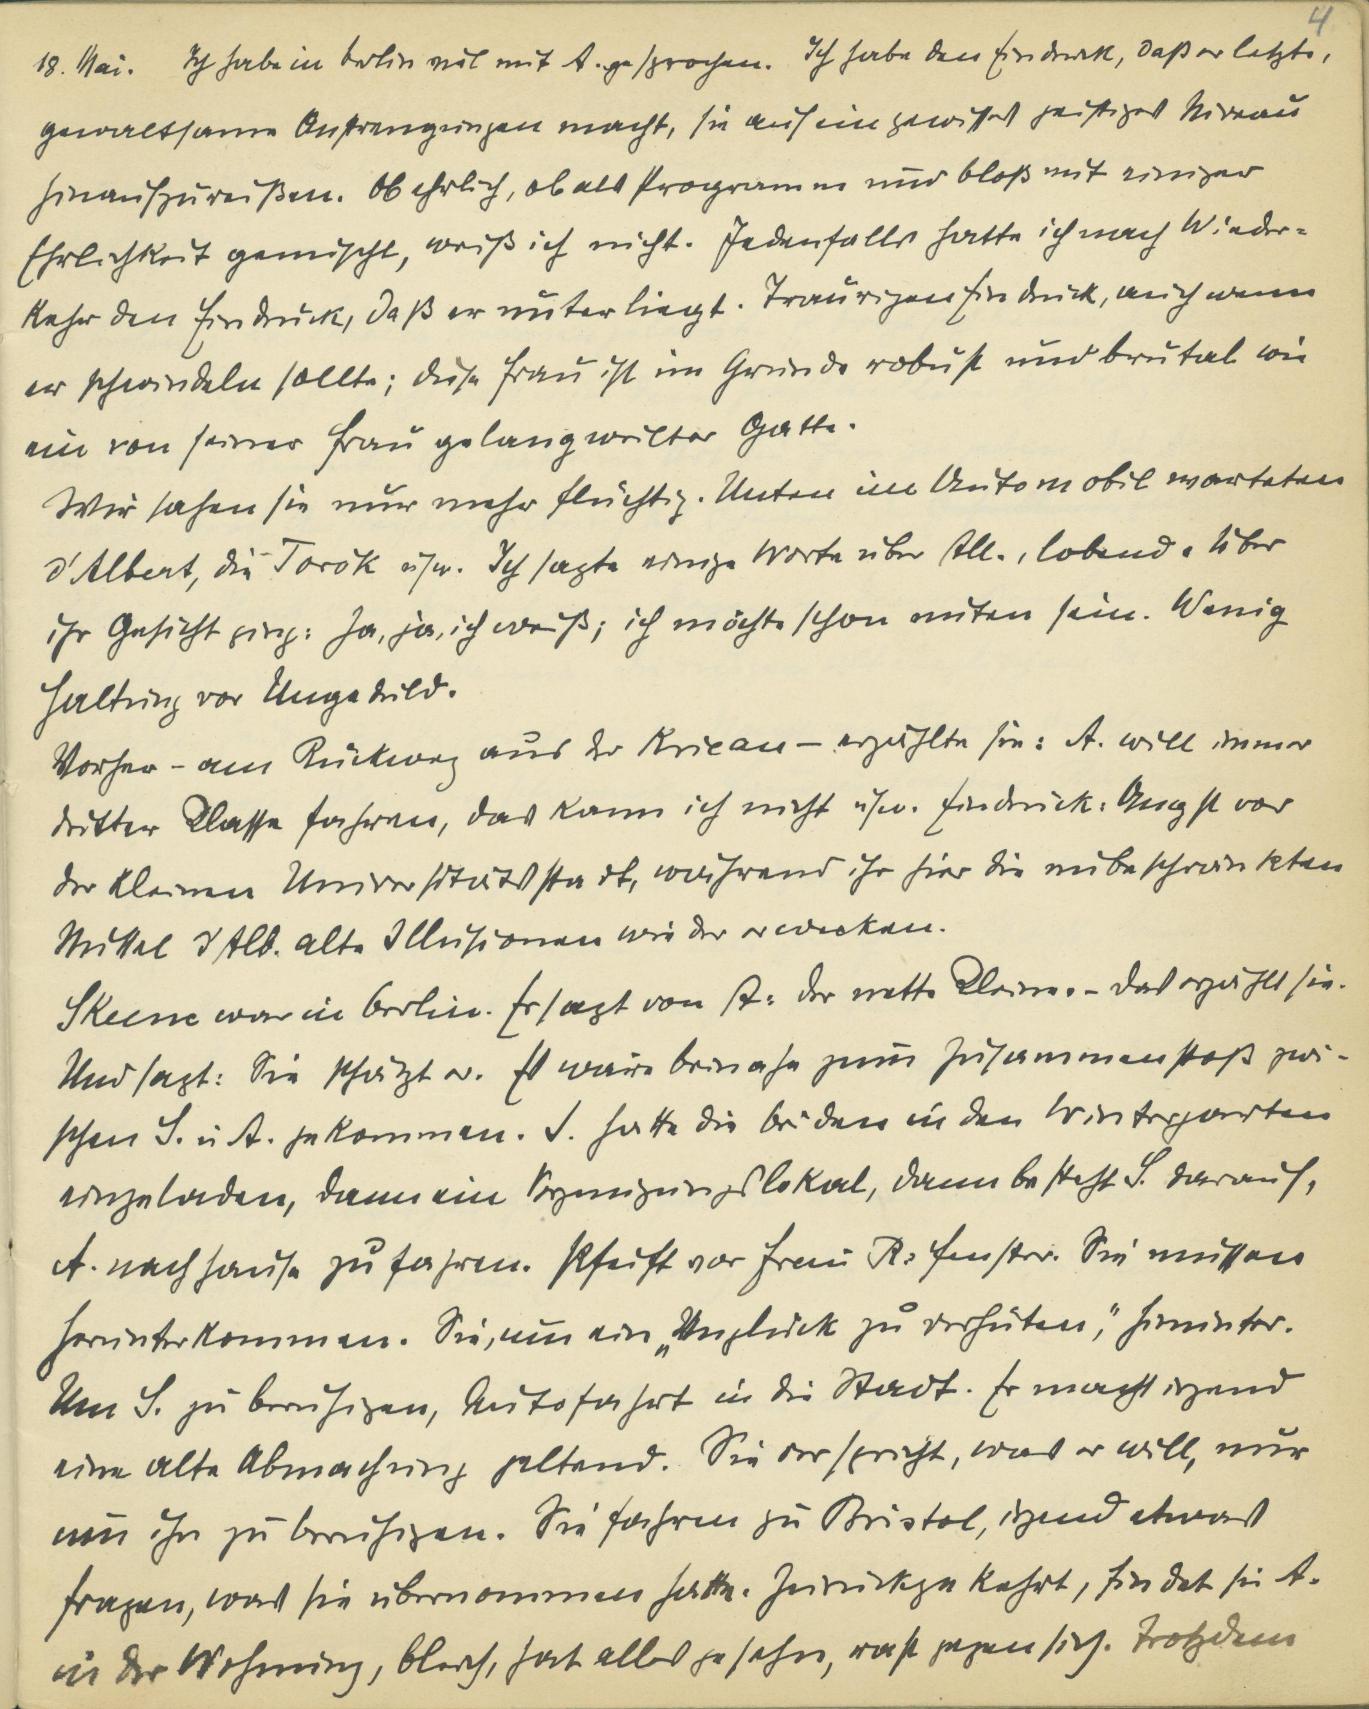 4
18. Mai. Ich habe in Berlin viel mit A. gesprochen. Ich habe den Eindruck, daß er letzte,
gewaltsame Anstrengungen macht, sie auf ein gewisses geistiges Niveau
hinaufzureißen. Ob ehrlich, ob als Programm und bloß mit einiger
Ehrlichkeit gemischt, weiß ich nicht. Jedenfalls hatte ich nach Wieder-
kehr den Eindruck, daß er unterliegt. Traurigen Eindruck, auch wenn
er schwindeln sollte; diese Frau ist im Grunde robust und brutal wie
ein von seiner Frau gelangweilter Gatte.
Wir sahen sie nur mehr flüchtig. Unten im Automobil warteten
d'Albert, die Torök usw. Ich sagte einige Worte über All., lobend. Über
ihr Gesicht ging: Ja, ja, ich weiß; ich möchte schon unten sein. Wenig
Haltung vor Ungeduld.
Vorher – am Rückweg aus der Krieau – erzählte sie: A. will immer
dritter Klasse fahren, das kann ich nicht usw. Eindruck: Angst vor
der kleinen Universitätsstadt, während ihr hier die unbeschränkten
Mittel d'Alb. alte Illusionen wieder erwecken.
Skene war in Berlin. Er sagt von A: der nette Kleine. – Das erzählt sie.
Und sagt: Sie schätzt er. Es wäre beinahe zum Zusammenstoß zwi-
schen S. u A. gekommen. S. hatte die beiden in den Wintergarten
eingeladen, dann ein Vergnügungslokal, dann besteht S. darauf,
A. nachhause zu fahren. Pfeift vor Frau R: Fenster. Sie müssen
herunterkommen. Sie, um ein „Unglück zu verhüten," hinunter.
Um S. zu beruhigen, Autofahrt in die Stadt. Er macht irgend
eine alte Abmachung geltend. Sie verspricht, was er will, nur
um ihn zu beruhigen. Sie fahren zu Bristol, irgend etwas
fragen, was sie übernommen hatte. Zurückgekehrt, findet sie A.
in der Wohnung, bleich, hat alles gesehn, rast gegen sich. Trotzdem